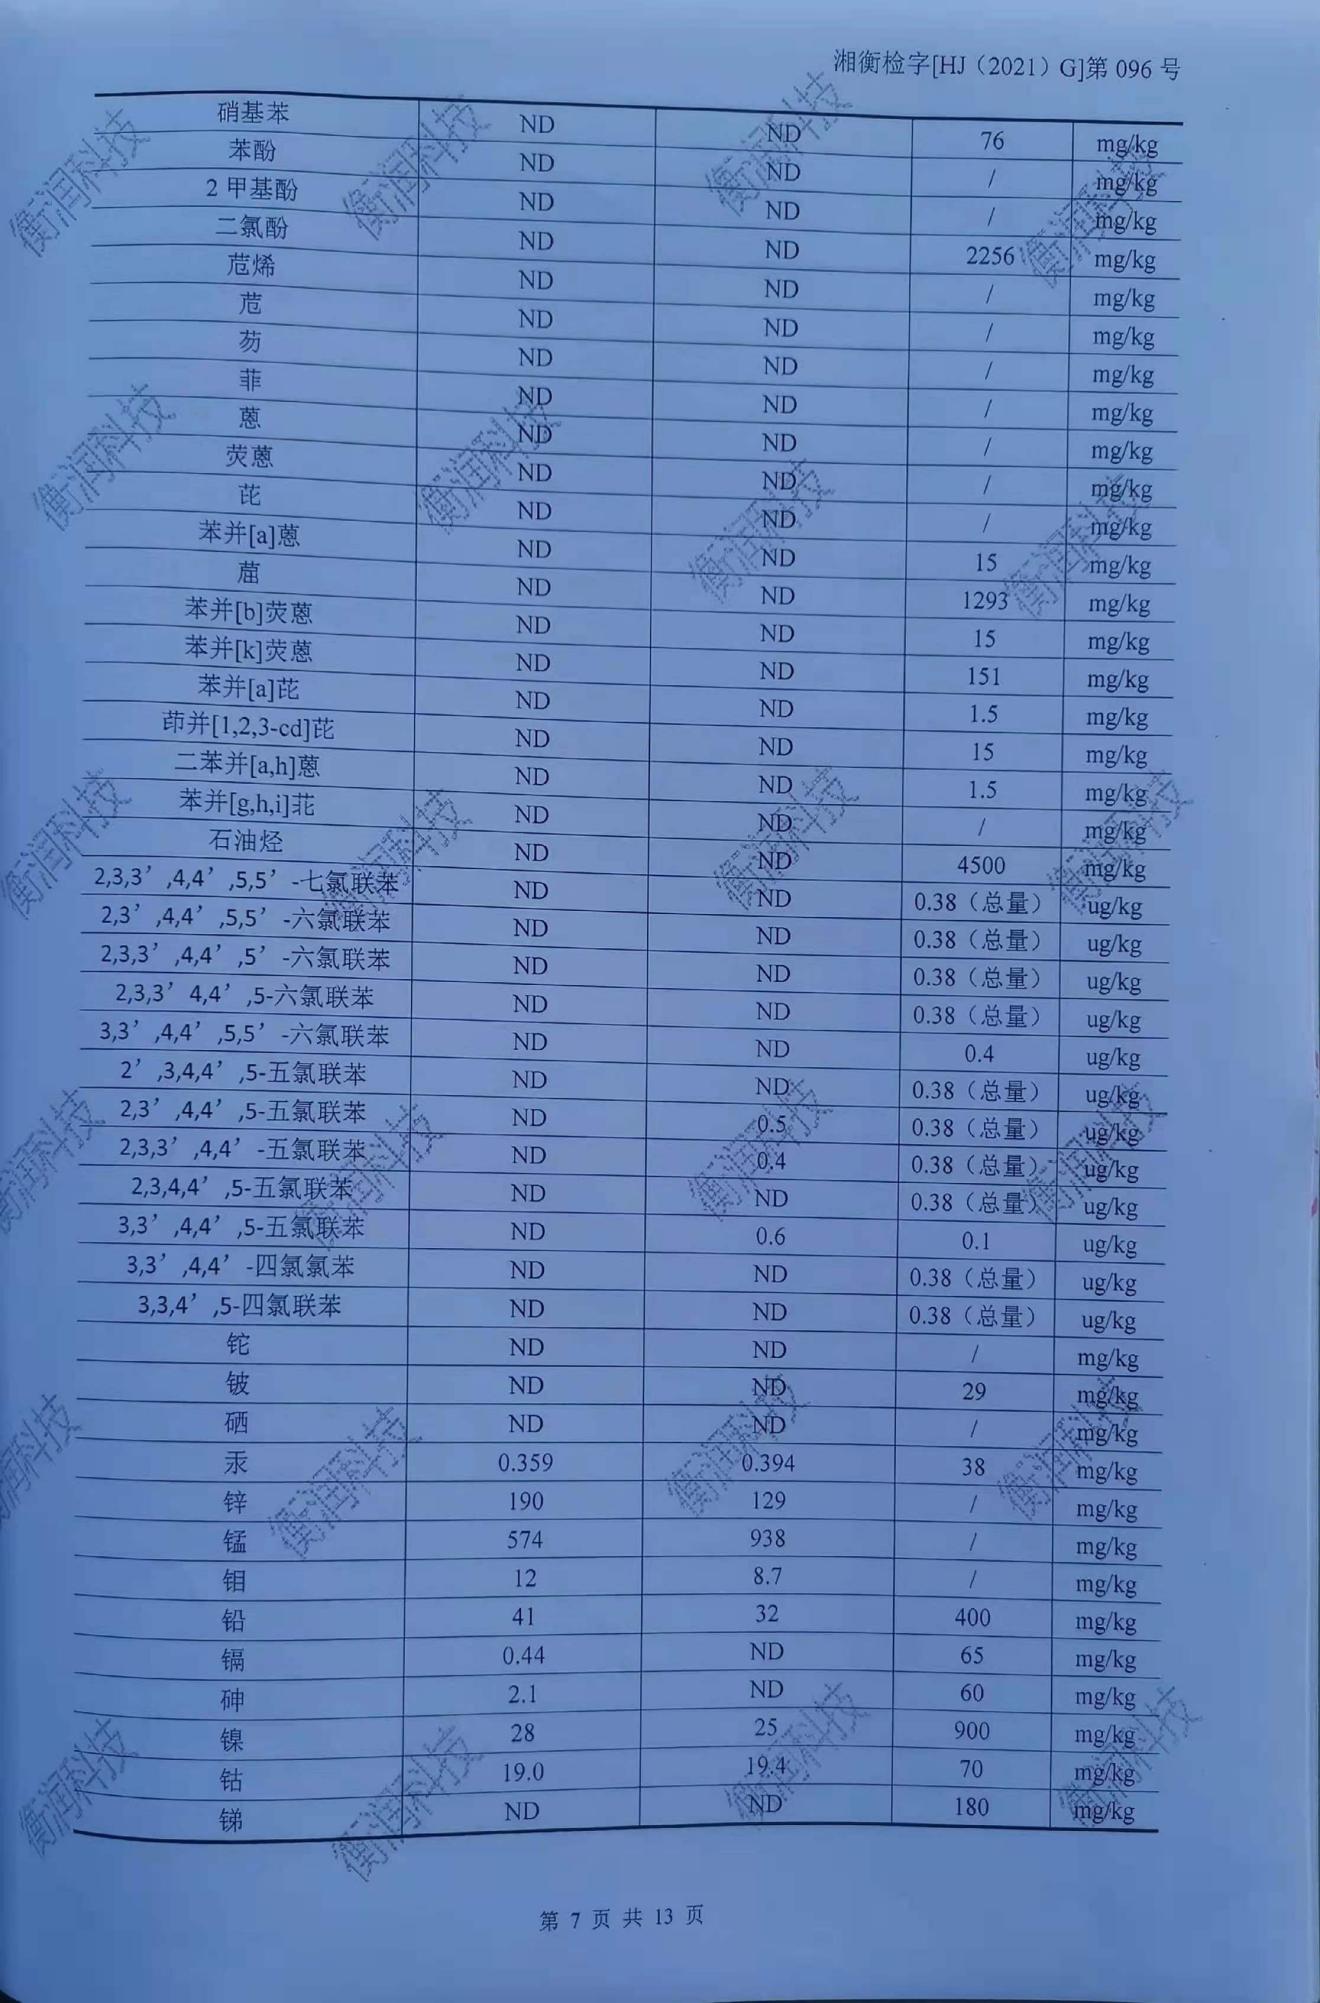 湘衡检字[HJ（2021）G]第 096 号
硝基苯 ND ND 76 mg/kg
苯酚 ND ND / mg/kg
2 甲基酚 ND ND / mg/kg
二氯酚 ND ND 2256 mg/kg
苊烯 ND ND / mg/kg
苊 ND ND / mg/kg
芴 ND ND / mg/kg
菲 ND ND / mg/kg
蒽 ND ND / mg/kg
荧蒽 ND ND / mg/kg
芘 ND ND / mg/kg
苯并[a]蒽 ND ND 15 mg/kg
䓛 ND ND 1293 mg/kg
苯并[b]荧蒽 ND ND 15 mg/kg
苯并[k]荧蒽 ND ND 151 mg/kg
苯并[a]芘 ND ND 1.5 mg/kg
茚并[1,2,3-cd]芘 ND ND 15 mg/kg
二苯并[a,h]蒽 ND ND 1.5 mg/kg
苯并[g,h,i]苝 ND ND / mg/kg
石油烃 ND ND 4500 mg/kg
2,3,3’,4,4’,5,5’-七氯联苯 ND ND 0.38（总量） ug/kg
2,3’,4,4’,5,5’-六氯联苯 ND ND 0.38（总量） ug/kg
2,3,3’,4,4’,5’-六氯联苯 ND ND 0.38（总量） ug/kg
2,3,3’4,4’,5-六氯联苯 ND ND 0.38（总量） ug/kg
3,3’,4,4’,5,5’-六氯联苯 ND ND 0.4 ug/kg
2’,3,4,4’,5-五氯联苯 ND ND 0.38（总量） ug/kg
2,3’,4,4’,5-五氯联苯 ND 0.5 0.38（总量） ug/kg
2,3,3’,4,4’-五氯联苯 ND 0.4 0.38（总量） ug/kg
2,3,4,4’,5-五氯联苯 ND ND 0.38（总量） ug/kg
3,3’,4,4’,5-五氯联苯 ND 0.6 0.1 ug/kg
3,3’,4,4’-四氯氯苯 ND ND 0.38（总量） ug/kg
3,3,4’,5-四氯联苯 ND ND 0.38（总量） ug/kg
铊 ND ND / mg/kg
铍 ND ND 29 mg/kg
硒 ND ND / mg/kg
汞 0.359 0.394 38 mg/kg
锌 190 129 / mg/kg
锰 574 938 / mg/kg
钼 12 8.7 / mg/kg
铅 41 32 400 mg/kg
镉 0.44 ND 65 mg/kg
砷 2.1 ND 60 mg/kg
镍 28 25 900 mg/kg
钴 19.0 19.4 70 mg/kg
锑 ND ND 180 mg/kg
第 7 页 共 13 页
衡润科技